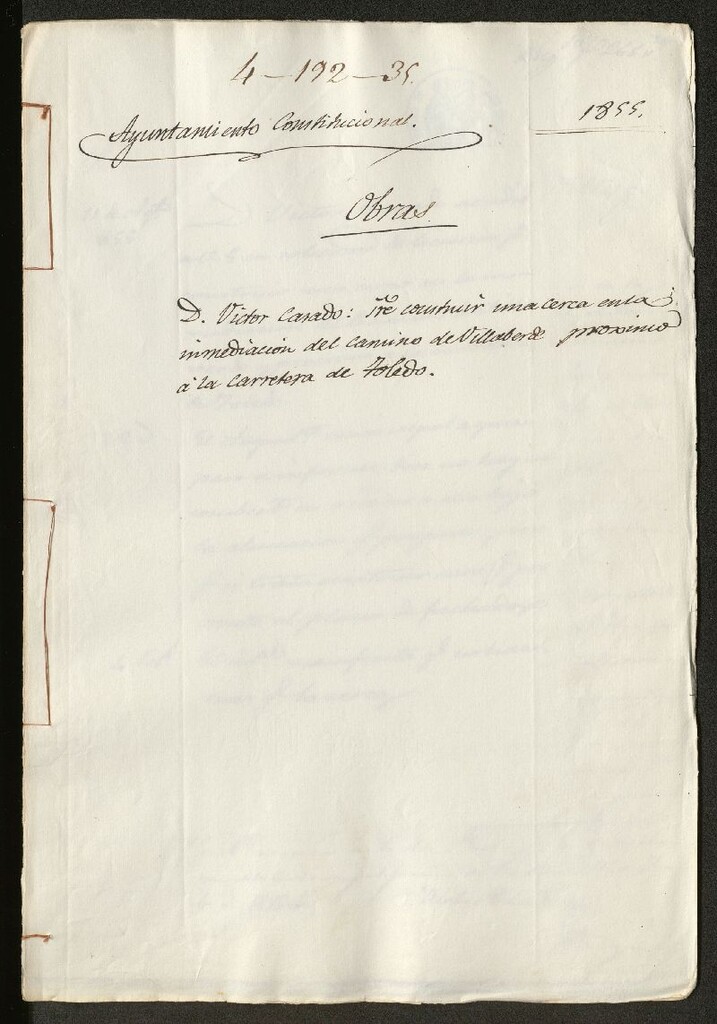 4-192-35.
1855.
Ayuntamiento Constitucional.
Obras
D. Victor Casado: sre construir una cerca en la
inmediacion del Camino de Villaberde proximo
á la Carretera de Toledo.